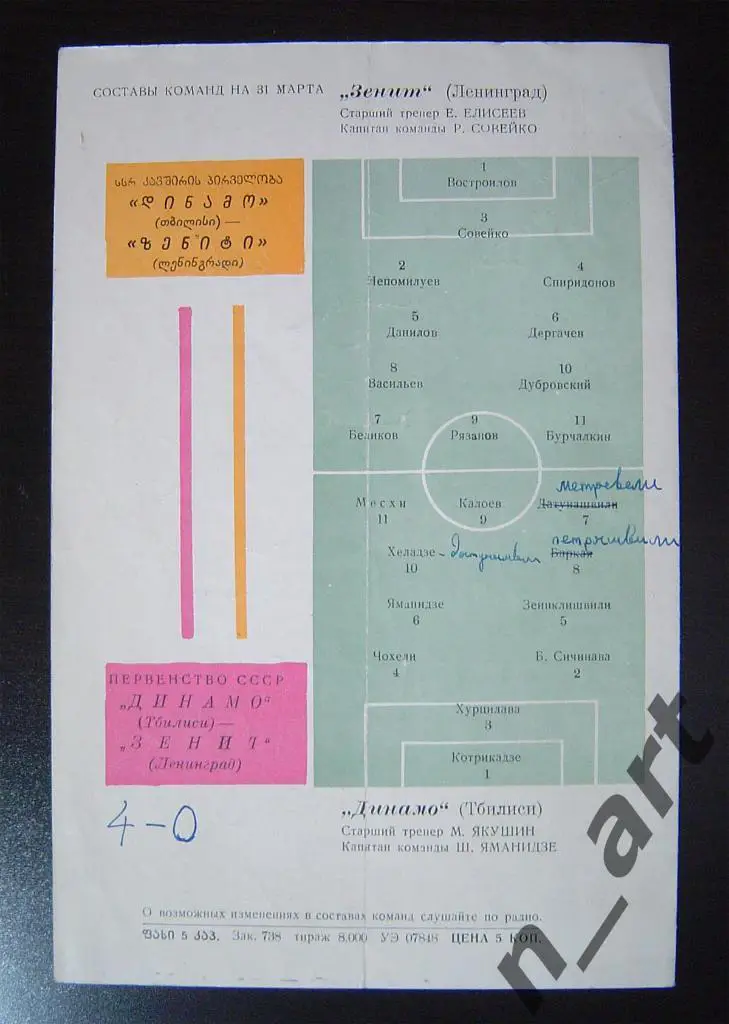 СОСТАВЫ КОМАНД НА 31 МАРТА
„Зенит“ (Ленинград)
Старший тренер Е. ЕЛИСЕЕВ
Капитан команды Р. СОВЕЙКО
სსრ კავშირის პირველობა
«დინამო»
(თბილისი) —
«ზენიტი»
(ლენინგრადი)
1
Востроилов
3
Совейко
2 4
Непомилуев Спиридонов
5 6
Данилов Дергачев
8 10
Васильев Дубровский
7 9 11
Беликов Рязанов Бурчалкин
метревели
Месхи Калоев Датунашвили
11 9 7
петрашвили
Хеладзе - Датунашвили Баркая
10 8
Яманидзе Зениклишвили
6 5
Чохели Б. Сичинава
4 2
Хурцилава
3
Котрикадзе
1
ПЕРВЕНСТВО СССР
„ДИНАМО“
(Тбилиси)—
„ЗЕНИТ“
(Ленинград)
4-0
„Динамо“ (Тбилиси)
Старший тренер М. ЯКУШИН
Капитан команды Ш. ЯМАНИДЗЕ
О возможных изменениях в составах команд слушайте по радио.
ფასი 5 კაპ. Зак. 738 тираж 8.000 УЭ 07848 ЦЕНА 5 КОП.
n_art